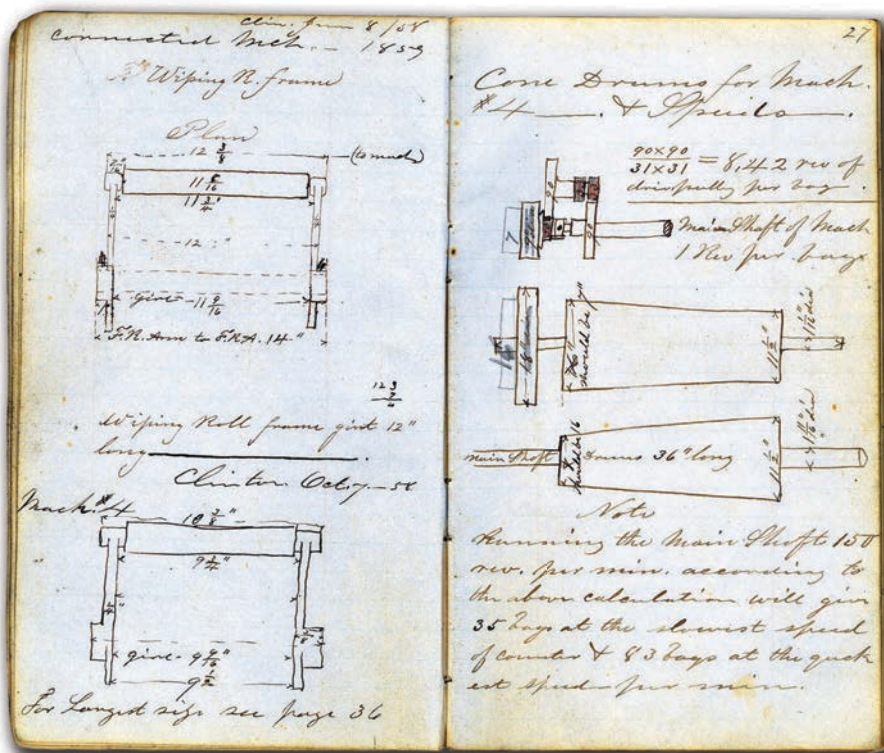 Clin. June 8/58
Connected Mch. - 1859
Wiping R. frame
Plan
12 3/8
(to much)
11 5/16
11 3/4"
12"
girt 11 9/16
F.R. Arm to F.R.A. 14"
Wiping Roll frame girt 12"
long
Clinton Oct. 7-58
Mach. #4
10 7/8"
9 3/4"
girt 9 9/16"
9 1/2
For Longest size see page 36
27
Cone Drums for Mach.
#4 & Speeds
90x90
31x31 = 8,42 rev of
drivpully per bag.
90
7
Main Shaft of Mach
1 Rev per bag
14
18
should be 7"
11 1/2"
1 1/16 dia
Main Shaft
should be 16
Drums 36" long
11 1/2"
dia
Note
Running the Main Shaft 150
rev. per min. according to
the above calculation will give
35 bags at the slowest speed
of counter & 83 bags at the quick
est speed per min.